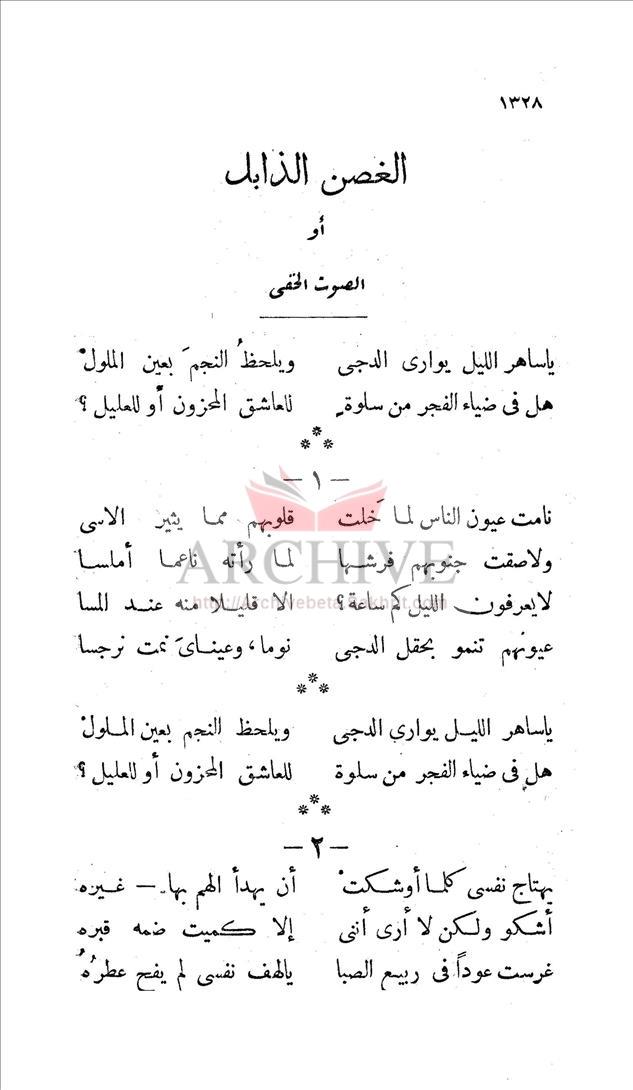 ١٣٢٨
الغصن الذابل
أو
الصوت الخفى
ياساهر الليل يوارى الدجى ويلحظُ النجمَ بعين الملولْ
هل فى ضياء الفجر من سلوةٍ للعاشق المحزون أو للعليل ؟
— ١ —
نامت عيون الناس لما خَلت قلوبهم مما يثير الاسى
ولاصقت جنوبهم فرشها لما رأته ناعما أملسا
لايعرفون الليل كم ساعة؟ الا قليلا منه عند المسا
عيونهم تنمو بحقل الدجى نوما، وعينايَ نمت نرجسا
ياساهر الليل يوارى الدجى ويلحظ النجم بعين الملولْ
هل فى ضياء الفجر من سلوة للعاشق المحزون أو للعليل ؟
— ٢ —
يهتاج نفسى كلما أوشكتْ أن يهدأ الهم بها — غيره
أشكو ولكن لا أرى أننى إلا كميت ضمه قبره
غرست عوداً فى ربيع الصبا يالهف نفسى لم يفح عطرُهُ
ARCHIVE
http://Archivebeta.Sakhrit.com